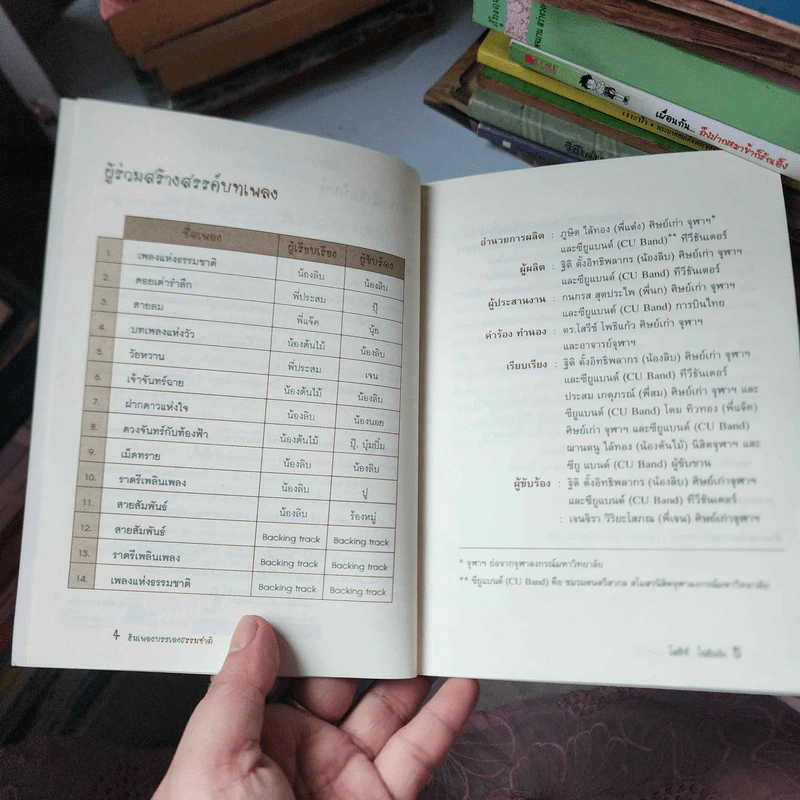 ผู้ร่วมสร้างสรรค์บทเพลง
ชื่อเพลง ผู้เรียบเรียง ผู้ขับร้อง
1. เพลงแห่งธรรมชาติ น้องลิบ น้องลิบ
2. ดอยเต่ารำลึก พี่ประสม ปุ๊
3. สายลม พี่แจ๊ด นุ้ย
4. บทเพลงแห่งวัว น้องต้นไม้ น้องลิบ
5. วัยหวาน พี่ประสม เจน
6. เจ้าจันทร์ฉาย น้องต้นไม้ น้องลิบ
7. ฝากดาวแห่งใจ น้องลิบ น้องนอย
8. ดวงจันทร์กับท้องฟ้า น้องต้นไม้ ปุ๊, บุ๋มบิ๋ม
9. เม็ดทราย น้องลิบ น้องลิบ
10. ราตรีเพลินเพลง น้องลิบ ปู
11. สายสัมพันธ์ น้องลิบ ร้องหมู่
12. สายสัมพันธ์ Backing track Backing track
13. ราตรีเพลินเพลง Backing track Backing track
14. เพลงแห่งธรรมชาติ Backing track Backing track
4 ฮัมเพลงบรรเลงธรรมชาติ
อำนวยการผลิต : ภูษิต ไล้ทอง (พี่แต๋ง) ศิษย์เก่า จุฬาฯ*
และซียูแบนด์ (CU Band)** ทีวีธันเดอร์
ผู้ผลิต : ฐิติ ตั้งอิทธิพลากร (น้องลิบ) ศิษย์เก่า จุฬาฯ
และซียูแบนด์ (CU Band) ทีวีธันเดอร์
ผู้ประสานงาน : กนกรส สุดประไพ (พี่นก) ศิษย์เก่า จุฬาฯ
และซียูแบนด์ (CU Band) การบินไทย
คำร้อง ทำนอง : ดร.ไสวีซ์ โพธิแก้ว ศิษย์เก่า จุฬาฯ
และอาจารย์จุฬาฯ
เรียบเรียง : ฐิติ ตั้งอิทธิพลากร (น้องลิบ) ศิษย์เก่า จุฬาฯ
และซียูแบนด์ (CU Band) ทีวีธันเดอร์
ประสม เกตุภรณ์ (พี่สม) ศิษย์เก่า จุฬาฯ และ
ซียูแบนด์ (CU Band) โดม ทิวทอง (พี่แจ๊ด)
ศิษย์เก่า จุฬาฯ และซียูแบนด์ (CU Band)
ฌานดนู ไล้ทอง (น้องต้นไม้) นิสิตจุฬาฯ และ
ซียู แบนด์ (CU Band) ผู้ขับขาน
ผู้ขับร้อง : ฐิติ ตั้งอิทธิพลากร (น้องลิบ) ศิษย์เก่า จุฬาฯ
และซียูแบนด์ (CU Band) ทีวีธันเดอร์
: เจนจิรา วิริยะโสภณ (พี่เจน) ศิษย์เก่าจุฬาฯ
* จุฬาฯ ย่อจากจุฬาลงกรณ์มหาวิทยาลัย
** ซียูแบนด์ (CU Band) คือ ชมรมดนตรีสากล สโมสรนิสิตจุฬาลงกรณ์มหาวิทยาลัย
5
CORE
เพื่อนกัน...